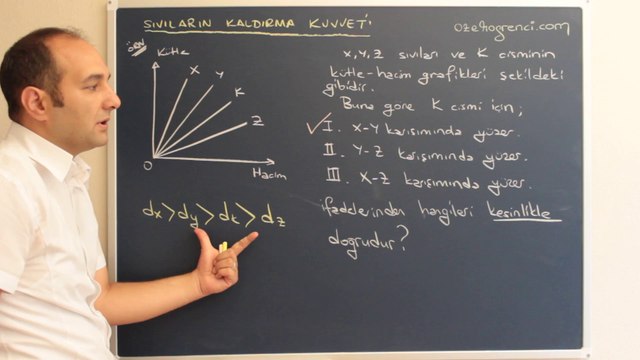 SIVILARIN KALDIRMA KUVVETİ
ozelogrenci.com
Örnek
Kütle
X
Y
K
Z
O
Hacim
dx > dy > dk > dz
X, Y, Z sıvıları ve K cisminin
kütle-hacim grafikleri şekildeki
gibidir.
Buna göre K cismi için;
✓ I. X-Y karışımında yüzer.
II. Y-Z karışımında yüzer.
III. X-Z karışımında yüzer.
ifadelerinden hangileri kesinlikle
doğrudur?